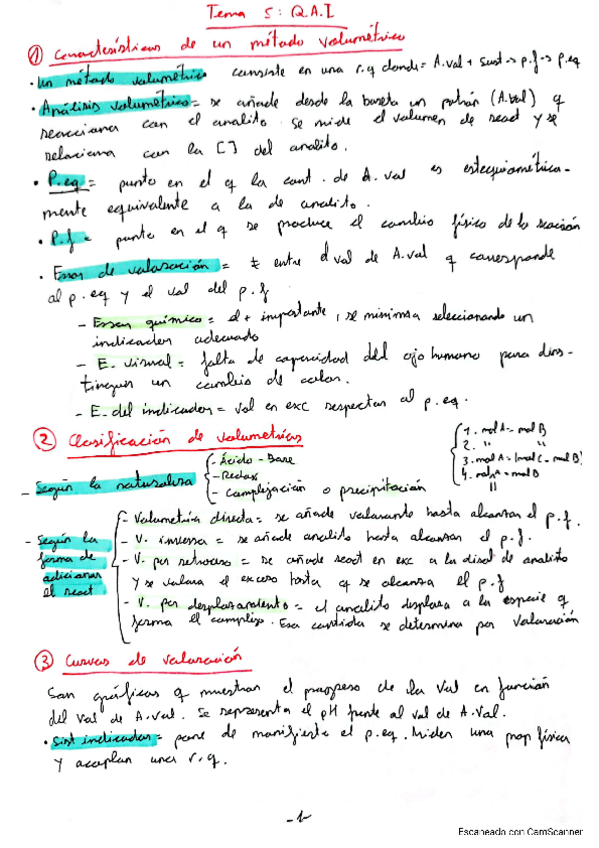 Tema 5: Q.A.I
① Características de un método volumétrico
• Un método volumétrico consiste en una r.q donde = A.val + sust → p.f → p.eq
• Análisis volumétrico = se añade desde la bureta un patrón (A.val) q
reacciona con el analito. Se mide el volumen de react y se
relaciona con la [] del analito.
• P.eq = punto en el q la cant. de A. val es estequiométrica-
mente equivalente a la de analito.
• P.f = punto en el q se produce el cambio físico de la reacción
• Error de valoración = ≠ entre el vol de A.val q corresponde
al p.eq y el vol del p.f
- Error químico = el + importante, se minimiza seleccionando un
indicador adecuado
- E. visual = falta de capacidad del ojo humano para dis-
tinguir un cambio de color.
- E. del indicador = vol en exc respecto al p.eq.
② Clasificación de volumetrías
1. mol A = mol B
2. " "
3. mol A = mol C - mol B
4. mol = mol B
"
- Según la naturaleza
- Ácido - Base
- Redox
- Complejación o precipitación
- Según la forma de adicionar el react
- Volumetría directa = se añade valorante hasta alcanzar el p.f.
- V. inversa = se añade analito hasta alcanzar el p.f.
- V. por retroceso = se añade react en exc a la disol de analito
y se valora el exceso hasta q se alcanza el p.f
- V. por desplazamiento = el analito desplaza a la especie q
forma el complejo. Esa cantidad se determina por valoración
③ Curvas de valoración
Son gráficas q muestran el progreso de la val en función
del vol de A.val. Se representa el pH frente al vol de A.val.
• Sist indicador = pone de manifiesto el p.eq. Miden una prop física
y acoplan una r.q.
-1-
Escaneado con CamScanner